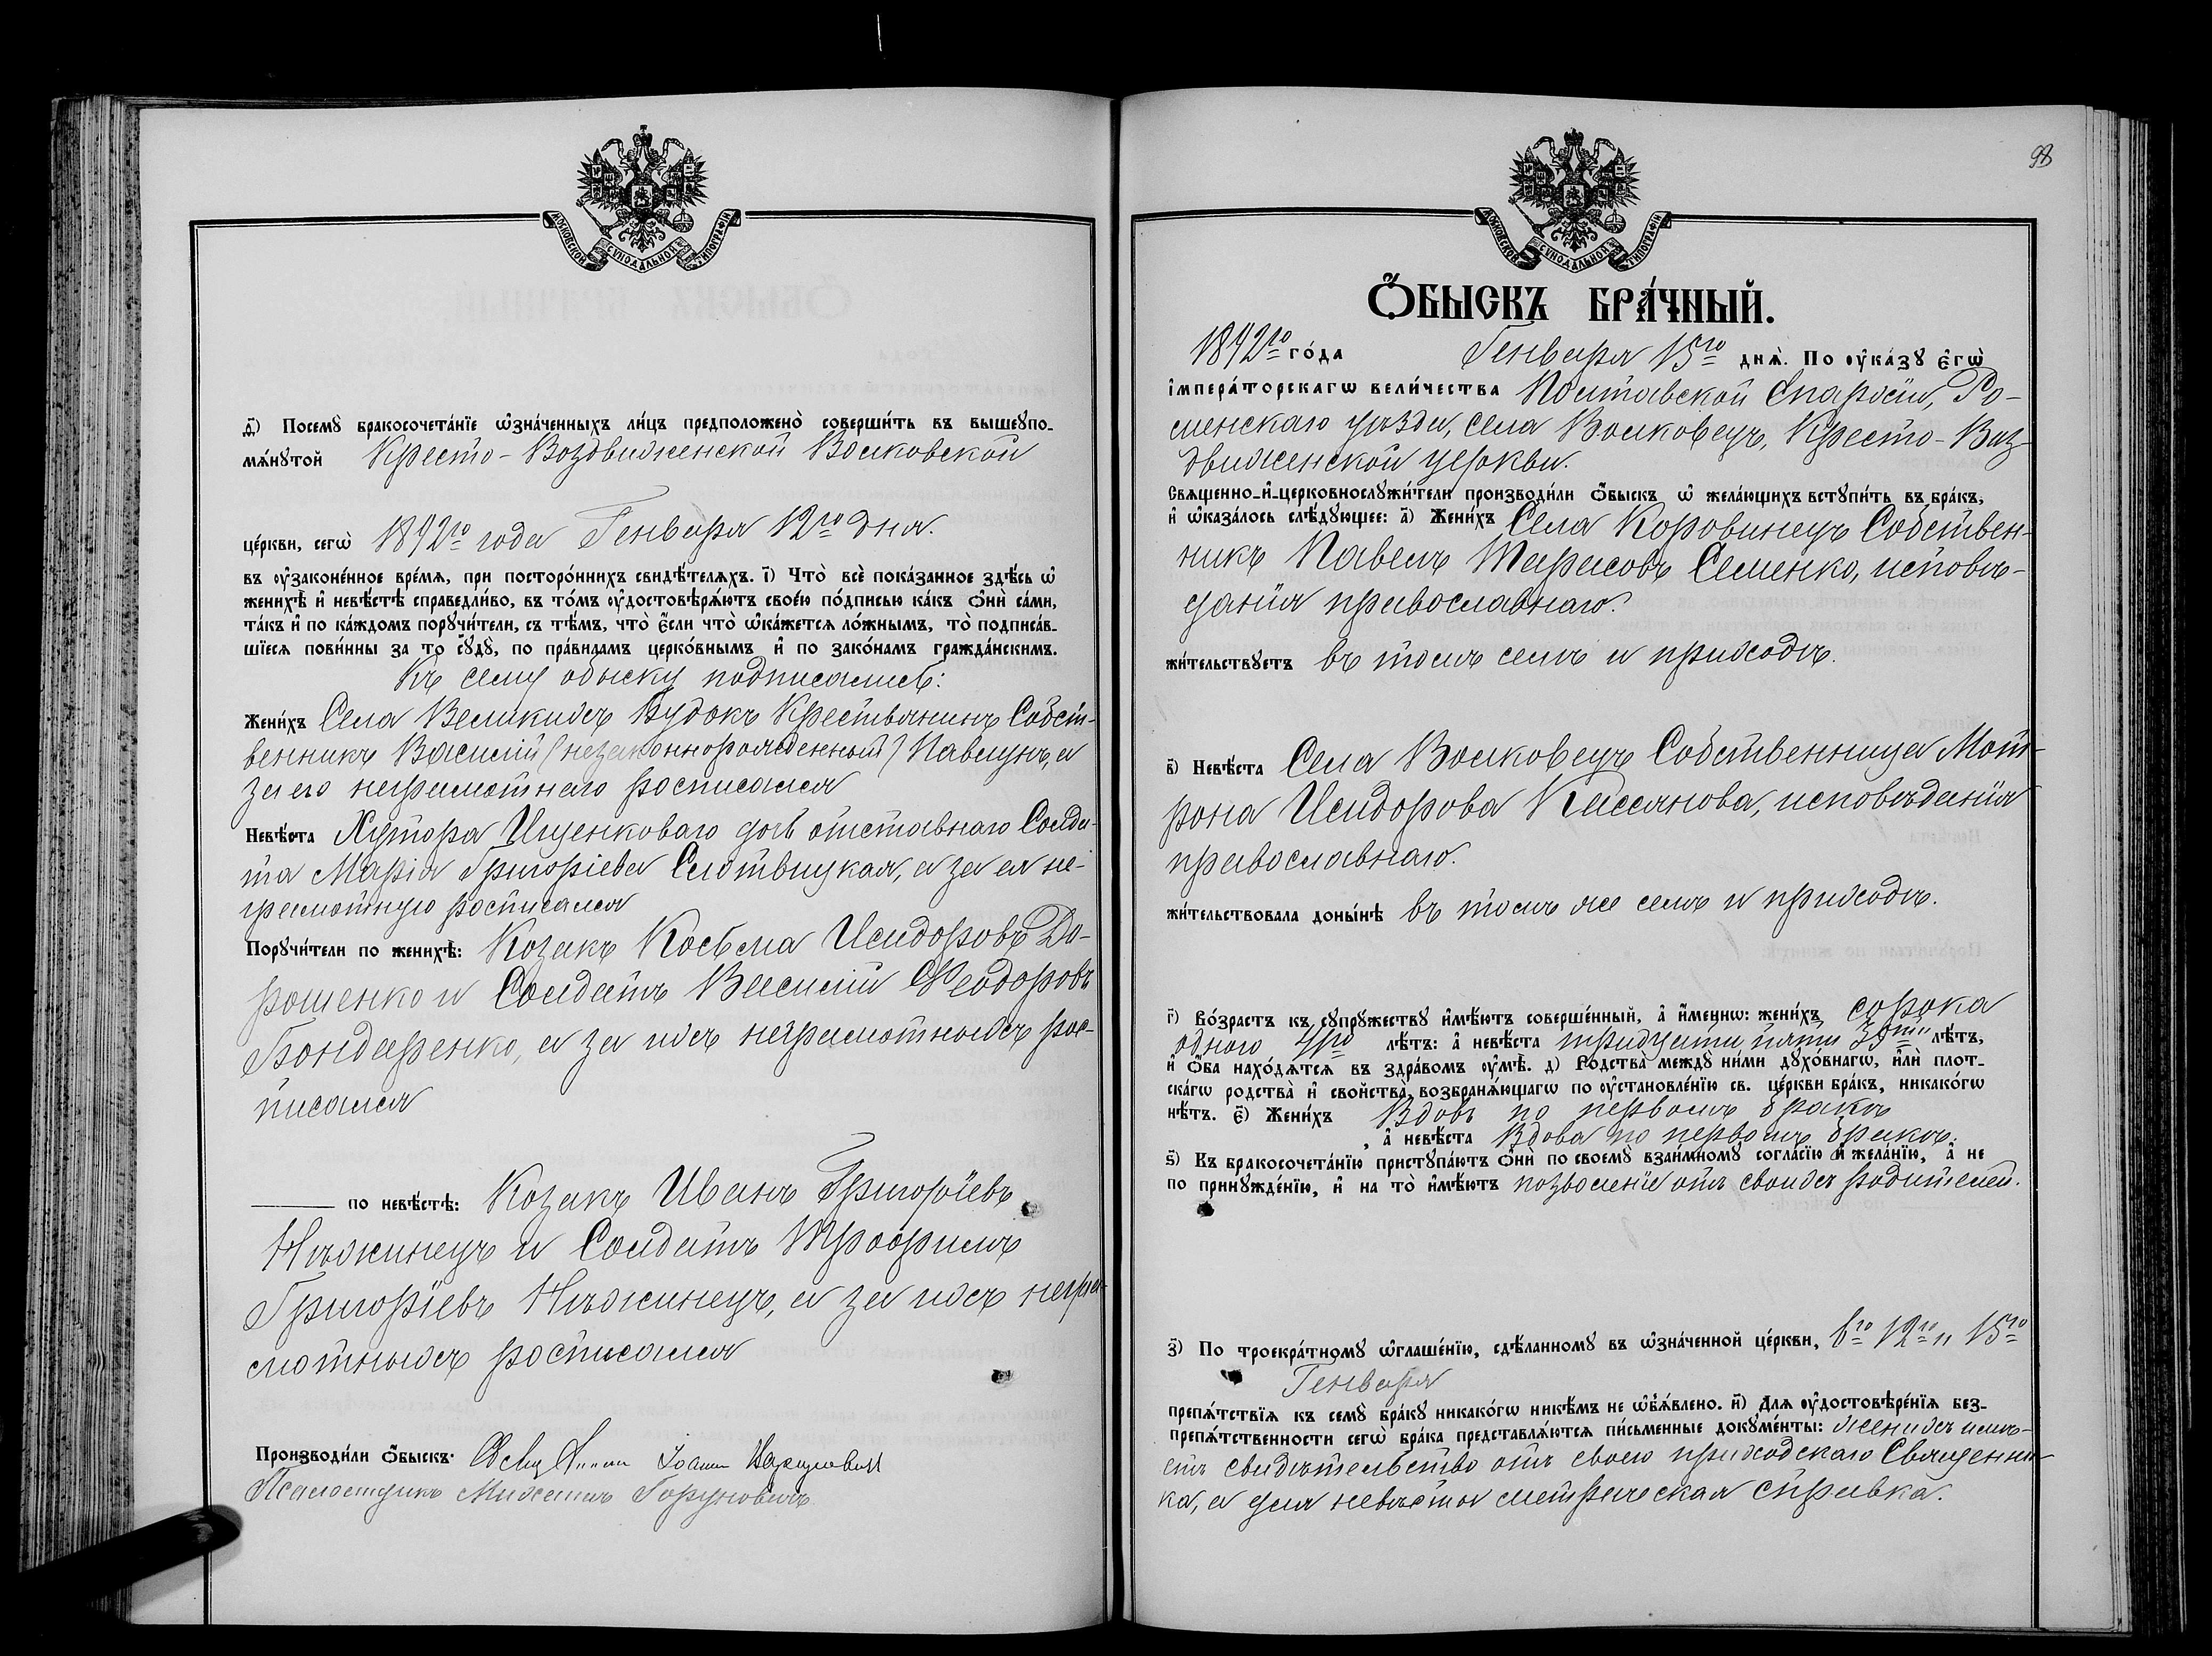 МОСКОВСКОЙ СѴНОДАЛЬНОЙ ТИПОГРАФІИ
ѳ҃) Посемꙋ бракосочета́нїе ѡ҆зна́ченныхъ ли́цъ предположено̀ соверши́ть въ вышеꙋпо-
мѧ́нꙋтой Кресто-Воздвиженской Волковской
це́ркви, сегѡ̀ 1892го года Генваря 12го дня.
въ ᲂу҆законе́нное вре́мѧ, при посторо́ннихъ свидѣ́телѧхъ. і҃) Что̀ всѐ пока́занное здѣ́сь ѡ҆
женихѣ̀ и҆ невѣ́стѣ справедли́во, въ то́мъ ᲂу҆достовѣрѧ́ютъ свое́ю по́дписью ка́къ ѻ҆нѝ са́ми,
та́къ и҆ по ка́ждомъ порꙋчи́тели, съ тѣ́мъ, что̀ є҆́сли что̀ ѡ҆ка́жетсѧ ло́жнымъ, то̀ подписа́в-
шїесѧ пови́нны за то сꙋдꙋ̀, по пра́виламъ церко́внымъ и҆ по зако́намъ гражда́нскимъ.
Къ сему обыску подписались:
Жени́хъ Села Великихъ Будокъ Крестьянинъ Собст-
венникъ Василій (незаконнорожденный) Павлунъ, а
за его неграмотнаго росписался
Невѣ́ста Хутора Ищенковаго дочь отставнаго Солда-
та Марія Григоріева Слотвицкая, а за ея не-
грамотную росписался
Порꙋчи́тели по женихѣ̀: Козакъ Косьма Исидоровъ До-
рошенко и Солдатъ Василій Ѳеодоровъ
Бондаренко, а за ихъ неграмотныхъ рос-
писался
по невѣ́стѣ: Козакъ Иванъ Григоріевъ
Нѣжинецъ и Солдатъ Трофимъ
Григоріевъ Нѣжинецъ, а за ихъ негра-
мотныхъ росписался
Производи́ли ѻ҆́быскъ: Іоаннъ
Псаломщикъ Михаилъ
98
МОСКОВСКОЙ СѴНОДАЛЬНОЙ ТИПОГРАФІИ
Ѻ҆́БЫСКЪ БРА́ЧНЫЙ.
1892го го́да Генваря 15го днѧ̀. По ᲂу҆ка́зꙋ є҆гѡ̀
і҆мпера́торскагѡ вели́чества Полтавской Епархіи, Ро-
менскаго уѣзда, села Волковецъ, Кресто-Воз
движенской церкви.
Свѧщенно-и҆-церковнослꙋжи́тели производи́ли ѻ҆́быскъ ѡ҆ жела́ющихъ встꙋпи́ть въ бра́къ,
и҆ ѡ҆каза́лось слѣ́дꙋющее: а҃) Жени́хъ Села Коровинецъ Собствен-
никъ Павелъ Тарасовъ Семенко, исповѣ-
данія православнаго.
жи́тельствꙋетъ въ томъ селѣ и приходѣ.
в҃) Невѣ́ста Села Волковецъ Собственница Мот-
рона Исидорова Касьянова, исповѣданія
православнаго.
жи́тельствовала донынѣ въ томъ же селѣ и приходѣ.
г҃) Во́зрастъ къ сꙋпрꙋжествꙋ и҆мѣ́ютъ соверше́нный, а҆ и҆́меннѡ: жени́хъ сорока
одного 41го лѣ́тъ: а҆ невѣ́ста тридцати пяти 35ти лѣ́тъ,
и҆ ѻ҆́ба нахо́дѧтсѧ въ здра́вомъ ᲂу҆мѣ̀. д) Родства̀ междꙋ̀ ни́ми дꙋхо́внагѡ, и҆лѝ плот-
ска́гѡ родства̀ и҆ свойства̀, возбранѧ́ющагѡ по ᲂу҆становле́нїю св. це́ркви бра́къ, никако́гѡ
нѣ́тъ. є҃) Жени́хъ Вдовъ по первомъ бракѣ
, а҆ невѣ́ста Вдова по первомъ бракѣ.
ѕ҃) Къ бракосочета́нїю пристꙋпа́ютъ ѻ҆нѝ по своемꙋ̀ взаи́мномꙋ согла́сїю и҆ жела́нїю, а҆ не
по принꙋжде́нїю, и҆ на то̀ и҆мѣ́ютъ позволеніе отъ своихъ родителей.
з҃) По троекра́тномꙋ ѡ҆глаше́нїю, сдѣ́ланномꙋ въ ѡ҆зна́ченной це́ркви, 6го 12го и 15го
Генваря
препѧ́тствїѧ къ семꙋ̀ бра́кꙋ никако́гѡ никѣ́мъ не ѡ҆б̾ѧ́влено. и҃) Для ᲂу҆достовѣре́нїѧ без-
препѧ́тственности сегѡ̀ бра́ка представлѧ́ютсѧ пи́сьменные докꙋме́нты: женихъ имѣ-
етъ свидѣтельство отъ своего приходскаго Священни-
ка, а для невѣсты метрическая справка.